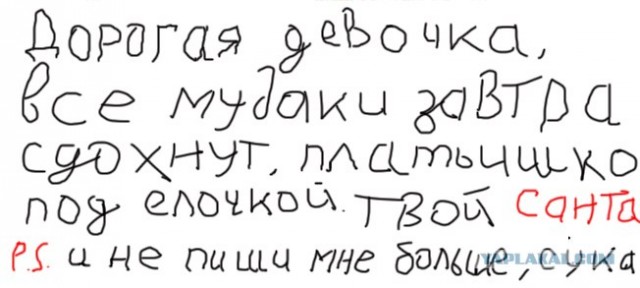 Дорогая девочка,
все мудаки завтра
сдохнут, платьишко
под елочкой. Твой Санта
P.S. и не пиши мне больше, сука
YAPLAKAL.COM